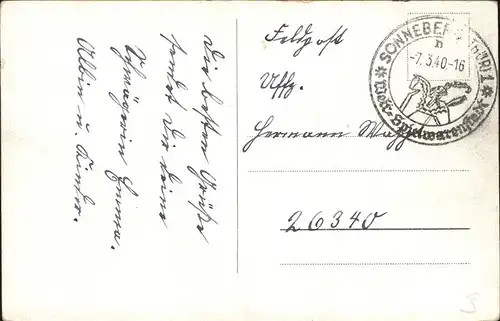 Die besten Grüße
sendet Dir Deine
Schwägerin Emma.
Albin u. Kinder.
Feldpost
Uffz.
Hermann
26340
SONNEBERG (THÜR) 1
n
-7.3.40-16
Welt-Spielwarenstadt